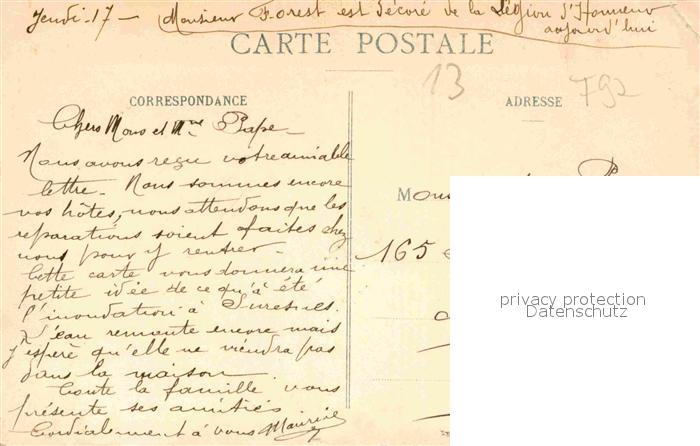 Jeudi-17 - Monsieur Forest est décoré de la Légion d'Honneur
aujourd'hui
CARTE POSTALE
13
792
CORRESPONDANCE
ADRESSE
Chers Mons et Mme Pape-
Nous avons reçu votre aimable
lettre. Nous sommes encore
vos hôtes, nous attendons que les
réparations soient faites chez
nous pour y rentrer.
Cette carte vous donnera une
petite idée de ce qu'à été
l'inondation à Suresnes.
L'eau remonte encore mais
j'espère qu'elle ne viendra pas
dans la maison.
Toute la famille vous
présente ses amitiés
Cordialement à vous Maurice
Mons
165
privacy protection
Datenschutz